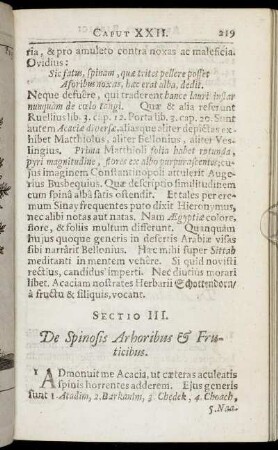 CAPUT XXII. 219
ria, & pro amuleto contra noxas ac maleficia.
Ovidius:
Sic fatus, spinam, quæ tristes pellere posset
A foribus noxas, hæc erat alba, dedit.
Neque desuêre, qui traderent hanc lauri instar
nunquam de cœlo tangi. Quæ & alia referunt
Ruellius lib. 3. cap. 12. Porta lib. 3. cap. 20. Sunt
autem Acaciæ diversæ, aliasque aliter depictas ex-
hibet Matthiolus, aliter Bellonius, aliter Ves-
lingius. Prima Matthioli folia habet rotunda,
pyri magnitudine, flores ex albo purpurascentes; cu-
jus imaginem Constantinopoli attulerit Auge-
rius Busbequius. Quæ descriptio similitudinem
cum spinâ albâ satis ostendit. Et tales per ere-
mum Sinay frequentes puto dixit Hieronymus,
nec alibi notas aut natas. Nam Ægyptiæ colore,
flore, & foliis multum differunt. Quanquam
hujus quoque generis in desertis Arabiæ visas
sibi narrârit Bellonius. Hæc mihi super Sittah
meditanti in mentem venêre. Si quid novisti
rectius, candidus imperti. Nec diutius morari
libet. Acaciam nostrates Herbarii Schottendorn/
à fructu & siliquis, vocant.
SECTIO III.
De Spinosis Arboribus & Fru-
ticibus.
1 ADmonuit me Acacia, ut cæteras aculeatis
spinis horrentes adderem. Ejus generis
sunt 1. Atadim, 2. Barkanim, 3. Chedek, 4. Choach,
5. Naa-